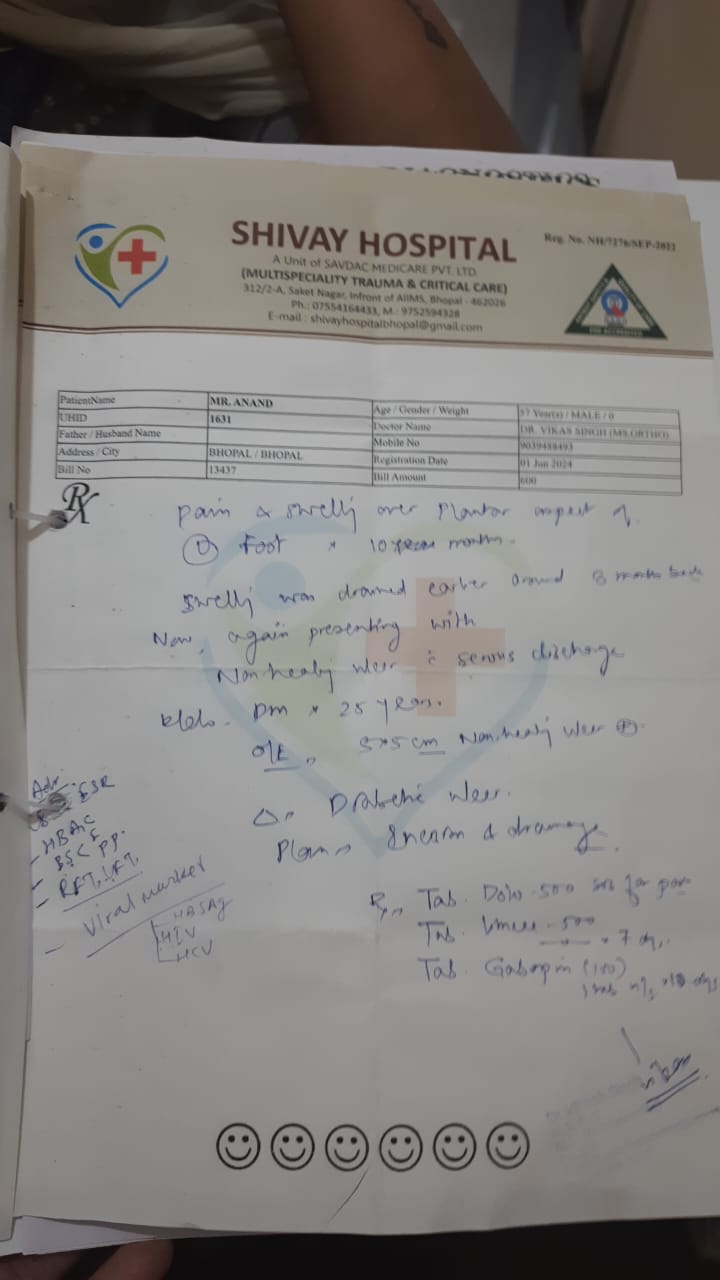 SHIVAY HOSPITAL
Reg. No. NH/7276/SEP-2022
A Unit of SAVDAC MEDICARE PVT. LTD.
(MULTISPECIALITY TRAUMA & CRITICAL CARE)
312/2-A, Saket Nagar, Infront of AIIMS, Bhopal - 462026
Ph.: 07554164433, M.: 9752594328
E-mail : shivayhospitalbhopal@gmail.com
PatientName MR. ANAND Age / Gender / Weight 57 Year(s) / MALE / 0
UHID 1631 Doctor Name DR. VIKAS SINGH (MS.ORTHO)
Father / Husband Name Mobile No 9039488493
Address / City BHOPAL / BHOPAL Registration Date 01 Jun 2024
Bill No 13437 Bill Amount 600
Rx
Pain & swelling over Plantar aspect of
Foot × 10 months.
Swelling was drained earlier around months back
Now, again presenting with
Non healing ulcer c̄ serous discharge
DM × 25 years.
O/E 5×5 cm Non healing ulcer
Δ Diabetic ulcer.
Plan & drainage
Adv.
ESR
- HBA1C
- PP.
- RFT, LFT.
- Viral marker
HBSAg
HIV
HCV
Tab. Dolo-500 sos for pain
Tab. -500 × 7 dys.
Tab. Gabapin (100)